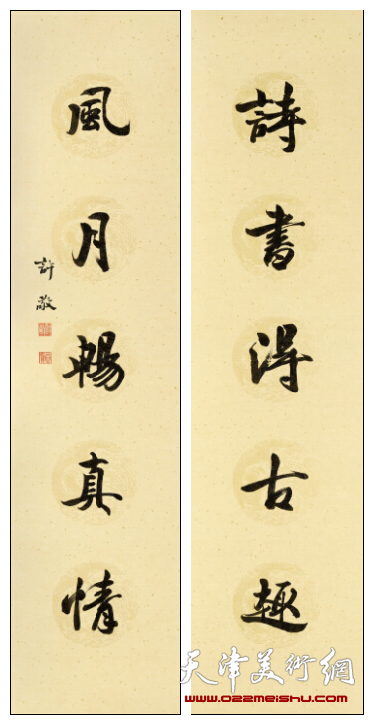 詩書得古趣
風月暢真情
許敬
天津美術網
www.022meishu.com